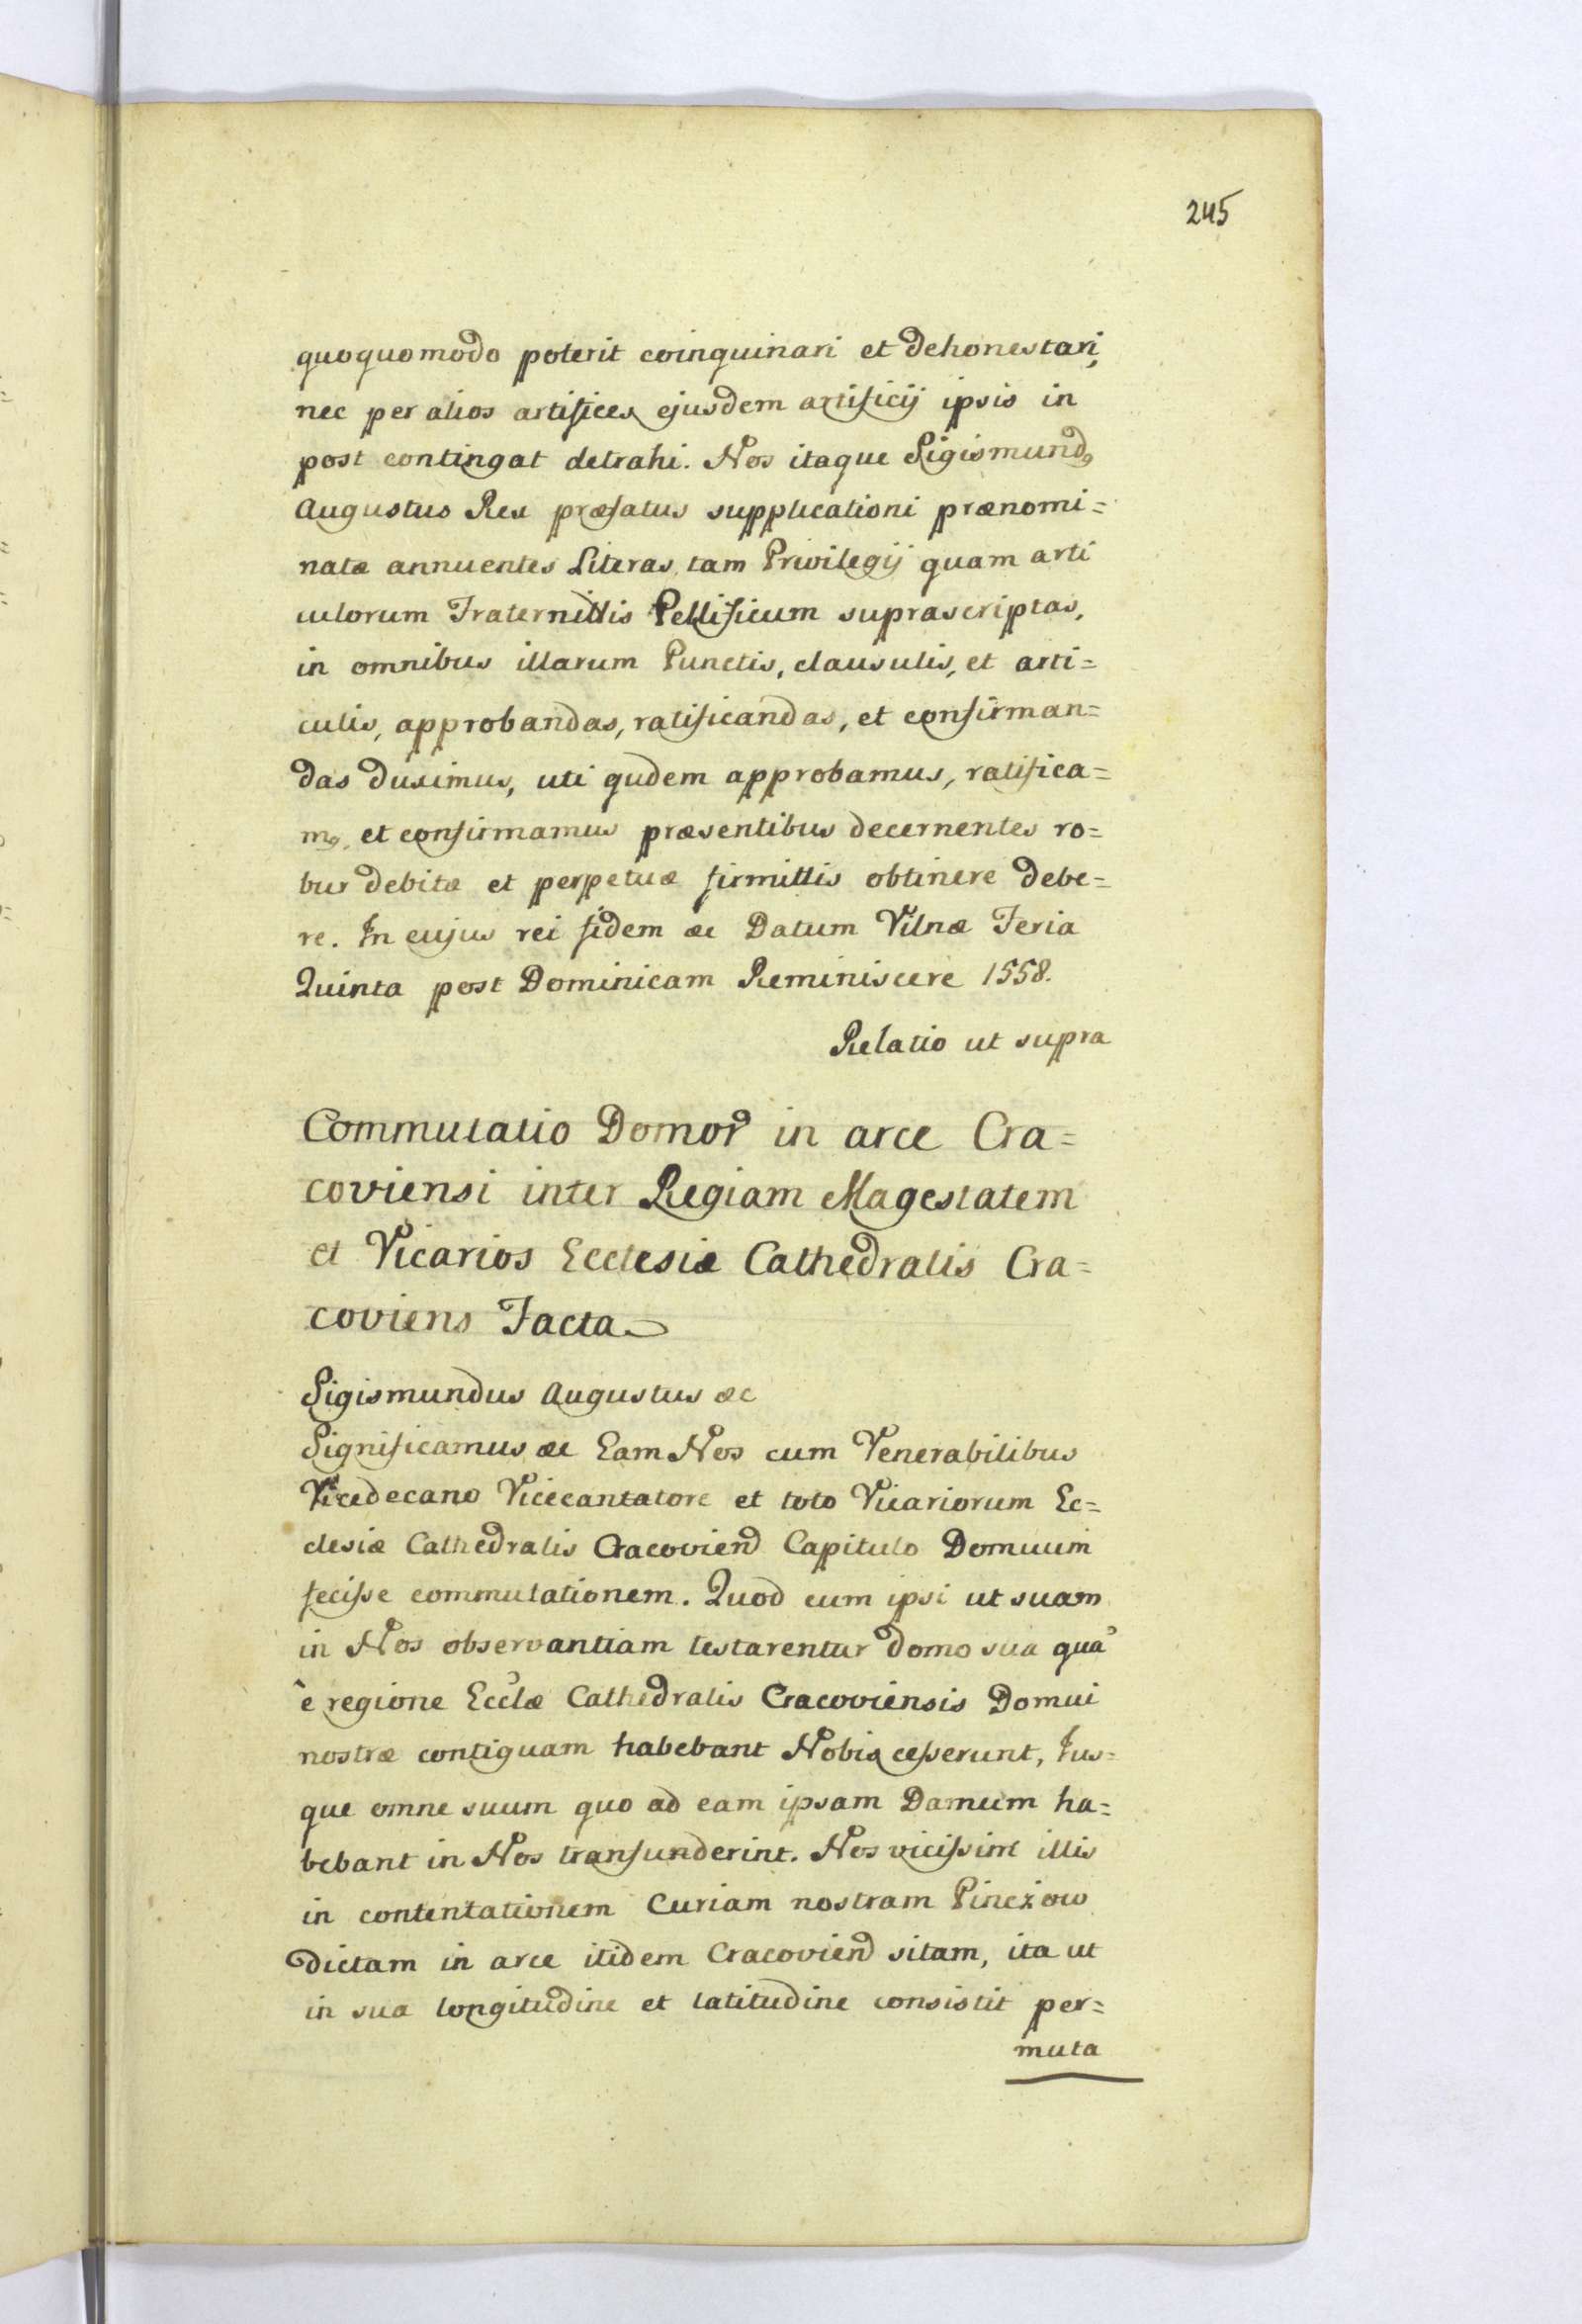 245
quoquomodo poterit coinquinari et dehonestari,
nec per alios artifices ejusdem artificij ipsis in
post contingat detrahi. Nos itaque Sigismundꝯ
Augustus Rex præfatus supplicationi prænomi=
natæ annuentes Literas tam Privilegij quam arti
culorum Fraternittis Pellificum suprascriptas,
in omnibus illarum Punctis, clausulis, et arti=
culis, approbandas, ratificandas, et confirman=
das duximus, uti qudem approbamus, ratifica=
mꝯ, et confirmamus præsentibus decernentes ro=
bur debitæ et perpetuæ firmittis obtinere debe=
re. In cujus rei fidem æc Datum Vilnæ Feria
Quinta post Dominicam Reminiscere 1558.
Relatio ut supra
Commutatio Domoꝝ in arce Cra=
coviensi inter Regiam Magestatem
et Vicarios Ecclesiæ Cathedralis Cra=
coviens Facta
Sigismundus Augustus æc
Significamus æc Eam Nos cum Venerabilibus
Vicedecano Vicecantatore et toto Vicariorum Ec=
clesiæ Cathedralis Cracovien Capitulo Domuum
fecisse commutationem. Quod cum ipsi ut suam
in Nos observantiam testarentur domo sua qua
è regione Ecclæ Cathedralis Cracoviensis Domui
nostræ contiguam habebant Nobis cesserunt, Jus=
que omne suum quo ad eam ipsam Damum ha=
bebant in Nos transfunderint. Nos vicissim illis
in contentationem Curiam nostram Pinczow
dictam in arce itidem Cracovien sitam, ita ut
in sua longitudine et latitudine consistit per=
muta